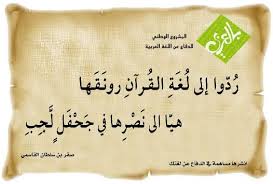 بالعربي
المشروع الوطني
للدفاع عن اللغة العربية
رُدّوا إلى لُغَةِ القُرآنِ رونَقَها
هيّا الى نَصْرِها في جَحْفَلٍ لَّجِبِ
صقر بن سلطان القاسمي
انشرها مساهمة في الدفاع عن لغتك